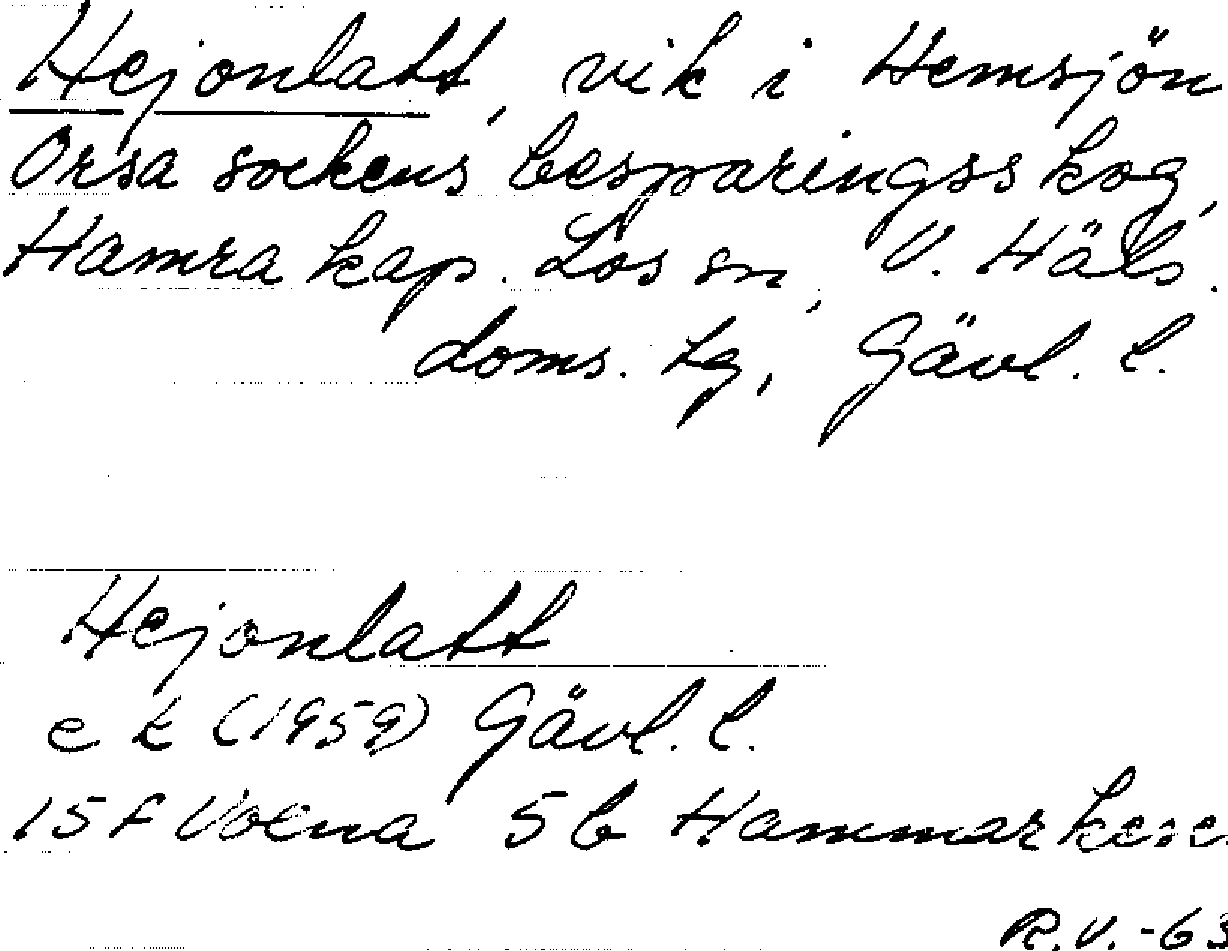 Hejonlatt, vik i Hemsjön
Orsa sockens besparingsskog,
Hamra kap. Los sn, V. Häls.
doms. tg, Gävl. l.
Hejonlatt
e k (1959) Gävl. l.
15 F Voxna 5 b Hammarkere
R.V. -63